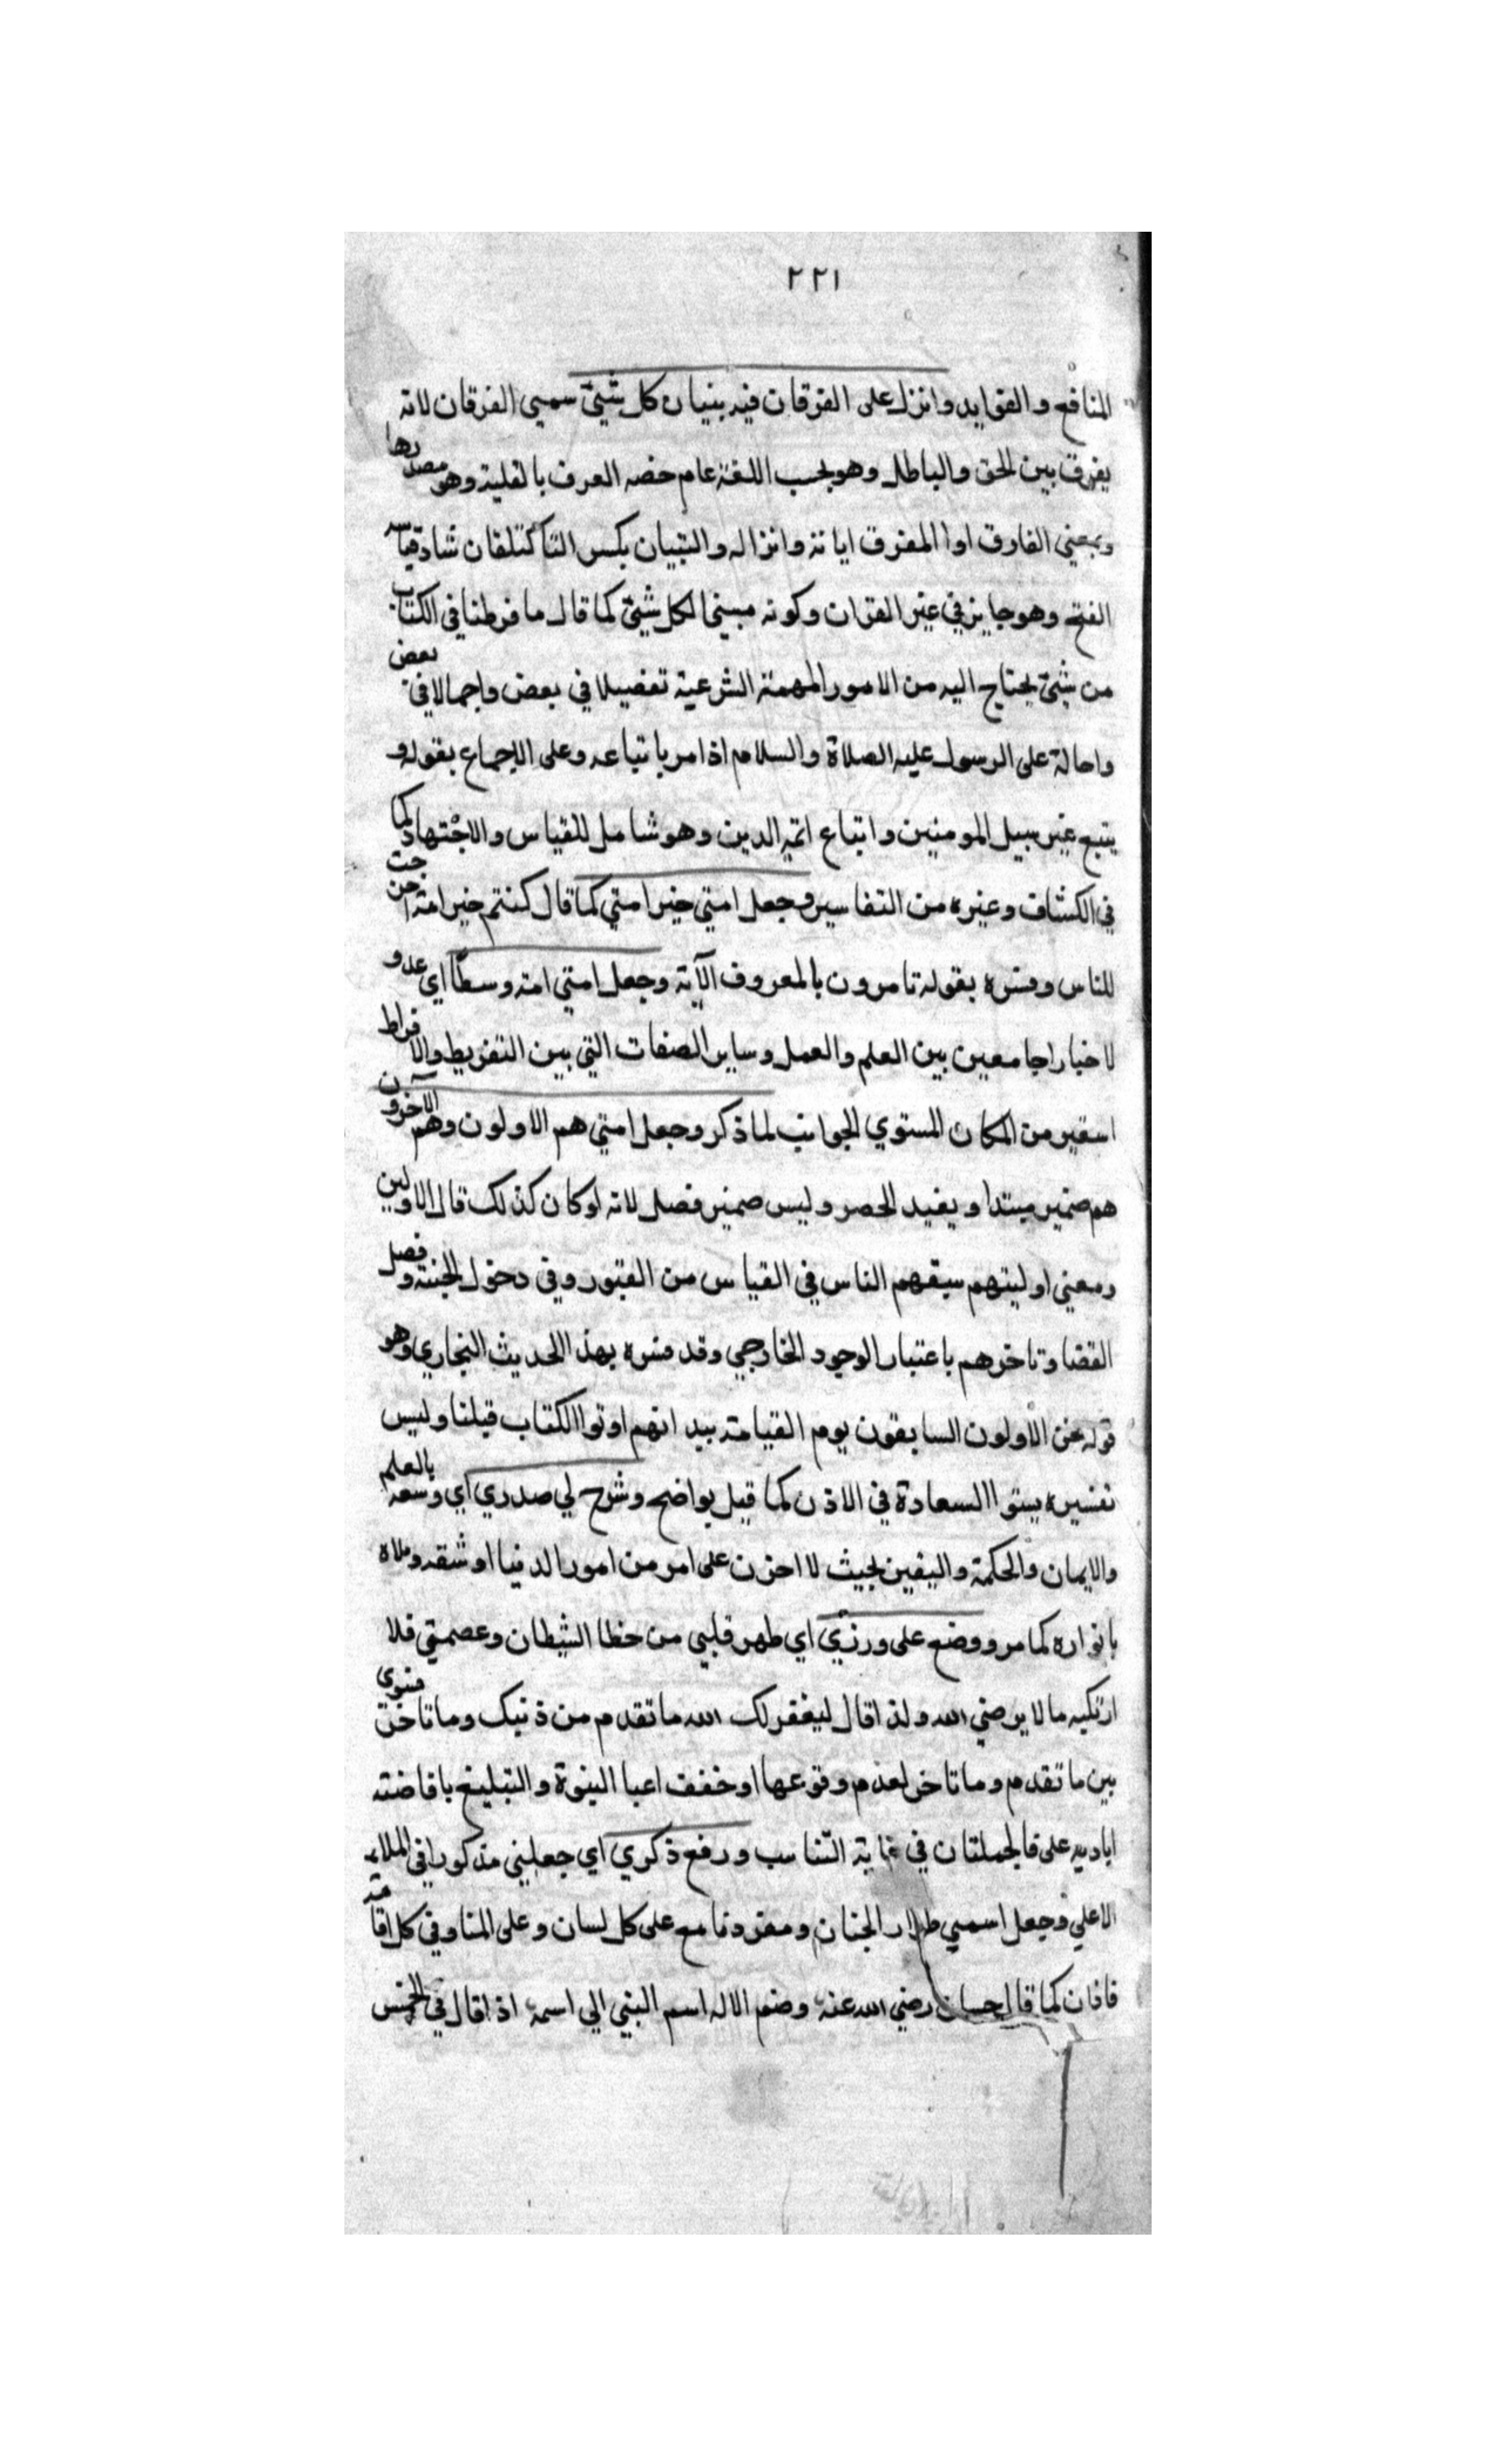 ٢٢١
المنافع والفوايد وانزل على الفرقان فيه بنيان كل شيئ سمي الفرقان لانه
يفرق بين الحق والباطل وهو بحسب اللغة عام خصه العرف بالغلبة وهو مصدرها
وبمعني الفارق اوا المفرق اياته وانزاله والتبيان بكسر التا كتلقان شاذ قياسه
الفتح وهو جايز في غير القران وكونه مبينا لكل شيئ كما قال ما فرطنا في الكتاب
من شيئ يحتاج اليه من الامور المهمة الشرعية تفصيلا في بعض واجمالا في بعض
واحالة على الرسول عليه الصلاة والسلام اذ امر باتباعه وعلى الاجماع بقوله و
يتبع غير سبيل المومنين واتباع ائمه الدين وهو شامل للقياس والاجتهاد كما
في الكشاف وغيره من التفاسير وجعل امتي خير امتي كما قال كنتم خير امة اخرجت
للناس وفسره بقوله تامرون بالمعروف الآية وجعل امتي امة وسطًا اي عدو
لا خيارا جامعين بين العلم والعمل وساير الصفات التي بين التفريط والافراط
استعير من المكان المستوي الجوانب لما ذكر وجعل امتي هم الاولون وهم الاخرون
هم ضمير مبتدا ويفيد الحصر وليس ضمير فصل لانه لو كان كذلك قال الاولين
ومعني اوليتهم سبقهم الناس في القياس من القبور وفي دخول الجنة وفصل
القضا وتاخرهم باعتبار الوجود الخارجي وقد فسره بهذا الحديث البخاري وهو
قوله نحن الاولون السابقون يوم القيامة بيد انهم اوتوا الكتاب قبلنا وليس
تفسيره بستوا السعادة في الاذن كما قيل بواضح وشرح لي صدري اي وسعه بالعلم
والايمان والحكمة واليقين بحيث لا احزن على امر من امور الدنيا او شقه وملاه
بانواره كما مر ووضع على وزري اي طهر قلبي من حظا الشيطان وعصمتي فلا
ارتكبه ما لا يرضي الله ولذا قال ليغفر لك الله ما تقدم من ذنبك وما تاخر فسوى
بين ما تقدم وما تاخر لعدم وقوعها او خفف اعبا النبوة والتبليغ بافاضته
اياديه على فالجملتان في غاية التناسب ورفع ذكري اي جعلني مذكورا في الملاء
الاعلي وجعل اسمي طراز الجنان ومقرونا مع على كل لسان وعلى المنا وفي كل اقامة
فاذان كما قال حسان رضي الله عنه وضم الاله اسم النبي الي اسمه اذا قال في الخمس